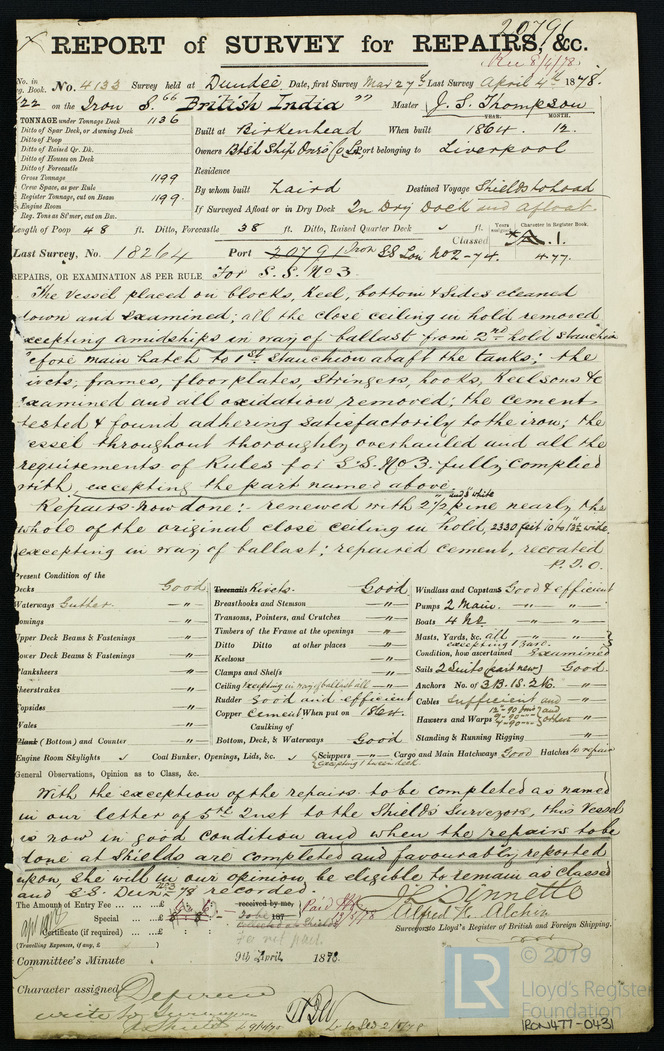 20796
REPORT of SURVEY for REPAIRS, &c.
Rec 8/4/78
No. in Reg. Book. No. 4133 Survey held at Dundee Date, first Survey Mar 27th Last Survey April 4th 1878.
22 on the Iron S. "British India" Master J. S. Thompson
TONNAGE under Tonnage Deck 1136
Ditto of Spar Deck, or Awning Deck
Ditto of Poop
Ditto of Raised Qr. Dk.
Ditto of Houses on Deck
Ditto of Forecastle
Gross Tonnage 1199
Crew Space, as per Rule
Register Tonnage, cut on Beam 1199
Engine Room
Reg. Tons as St'mer, cut on Bm.
YEAR. MONTH.
Built at Birkenhead When built 1864. 12.
Owners British Ship Ownrs Co Ld Port belonging to Liverpool
Residence
By whom built Laird Destined Voyage Shields to load
If Surveyed Afloat or in Dry Dock In Dry Dock and Afloat.
Length of Poop 48 ft. Ditto, Forecastle 38 ft. Ditto, Raised Quarter Deck ft.
Years assigned Character in Register Book.
Classed A. 1.
4.77.
Last Survey, No. 18264 Port 20791 Iron SS Lon No 2-74.
REPAIRS, OR EXAMINATION AS PER RULE For S.S. No 3.
The vessel placed on blocks, Keel, bottom & Sides cleaned
down and examined; all the close ceiling in hold removed
excepting amidships in way of ballast from 2nd hold stanchion
before main hatch to 1st stanchion abaft the tanks; the
rivets, frames, floorplates, stringers, hooks, Keelsons &c
examined and all oxidation removed; the cement
tested & found adhering satisfactorily to the iron; the
vessel throughout thoroughly overhauled and all the
requirements of Rules for S.S. No 3. fully complied
with, excepting the part named above.
Repairs now done:- renewed with 2 1/2 and 3 white pine nearly the
whole of the original close ceiling in hold, 2330 feet 10 to 13 1/2 wide,
excepting in way of ballast; repaired cement, recoated
P.T.O.
Present Condition of the
Decks Good
Waterways Gutter -"-
Comings -"-
Upper Deck Beams & Fastenings -"-
Lower Deck Beams & Fastenings -"-
Planksheers -"-
Sheerstrakes -"-
Topsides -"-
Wales -"-
Plank (Bottom) and Counter -"-
Engine Room Skylights
Treenails Rivets. Good
Breasthooks and Stemson -"-
Transoms, Pointers, and Crutches -"-
Timbers of the Frame at the openings -"-
Ditto Ditto at other places -"-
Keelsons -"-
Clamps and Shelfs -"-
Ceiling excepting in way of ballast all -"-
Rudder Good and efficient
Copper Cement When put on 1864.
Caulking of
Bottom, Deck, & Waterways Good
Coal Bunker, Openings, Lids, &c.
Windlass and Capstans Good & efficient
Pumps 2 Main. -"- -"-
Boats 4 No -"- -"-
Masts, Yards, &c. all -"- -"-
excepting 1 Yard.
Condition, how ascertained Examined
Sails 2 Suits (part new) Good.
Anchors No. of 3 B. 1 S. 2 K. -"-
Cables Sufficient and -"-
Hawsers and Warps 12"-90 9-90 4-90 and others -"-
Standing & Running Rigging -"-
Scuppers -"- Cargo and Main Hatchways Good Hatches to repair
excepting 1 tween deck
General Observations, Opinion as to Class, &c.
With the exception of the repairs to be completed as named
in our letter of 5th Inst to the Shields Surveyors, this Vessel
is now in good condition and when the repairs to be
done at Shields are completed and favourably reported
upon, she will in our opinion be eligible to remain as classed
and S.S. Dun No 3 78 recorded.
The Amount of Entry Fee ... ... £ received by me,
Special ... ... £ 187
Certificate (if required) ... £
(Travelling Expenses, if any, £ )
Alfred H. Alchin
Surveyors to Lloyd's Register of British and Foreign Shipping.
Committee's Minute 9th April 1878.
Character assigned Deferred
write to Surveyors
© 2019
LR
Lloyd's Register
Foundation
IRON477-0431